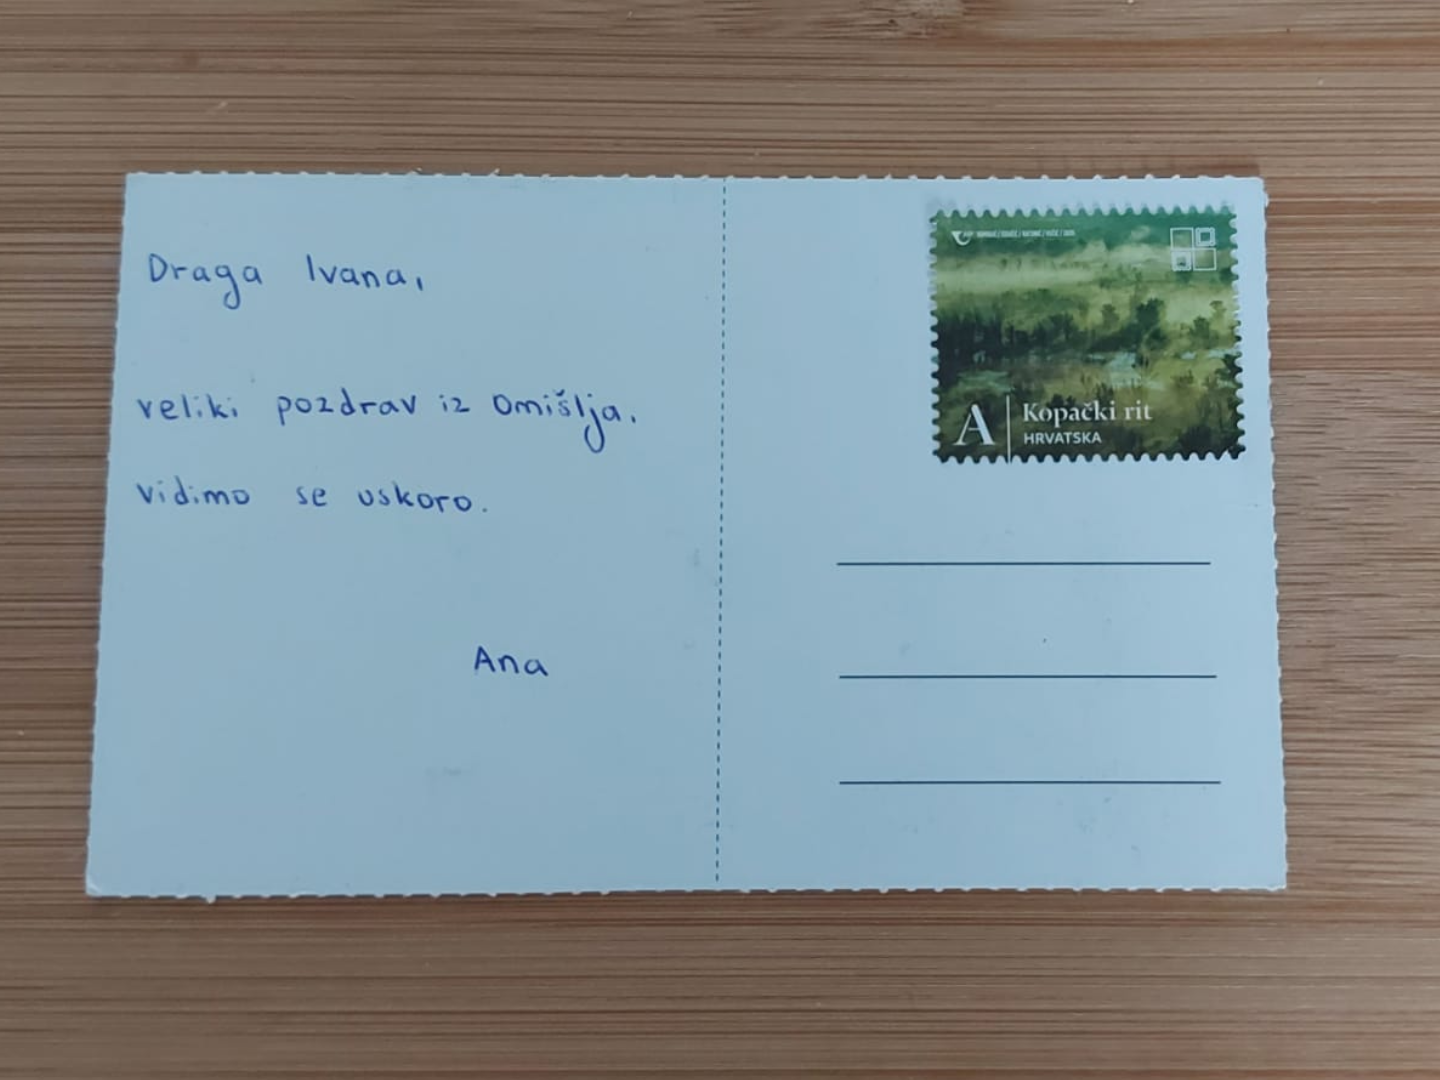 Draga Ivana,
veliki pozdrav iz Omišlja.
vidimo se uskoro.
Ana
A
Kopački rit
HRVATSKA